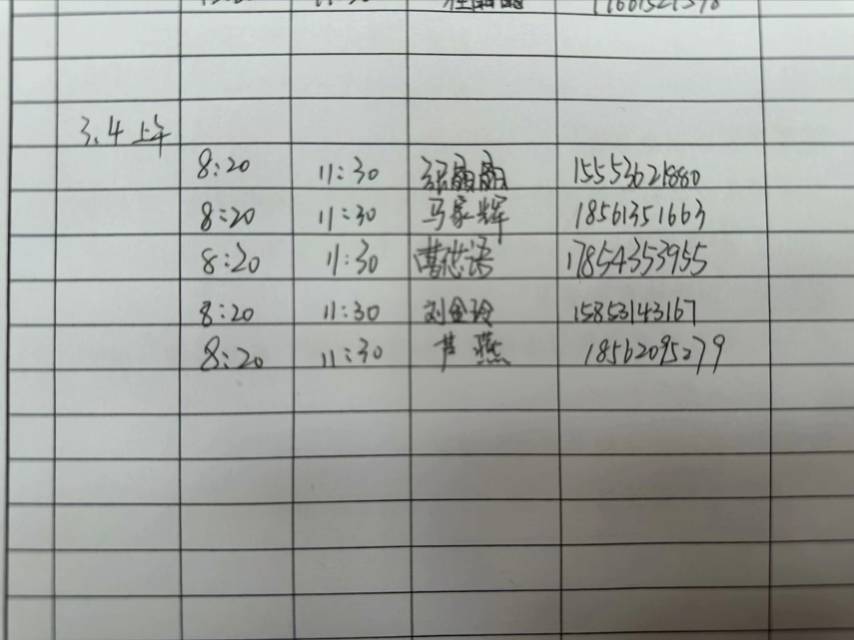 3.4 上午
8:20 11:30 张丽丽 15553621880
8:20 11:30 马家辉 18561351663
8:20 11:30 曹世语 17854353955
8:20 11:30 刘金玲 15853143167
8:20 11:30 芦燕 18562095279